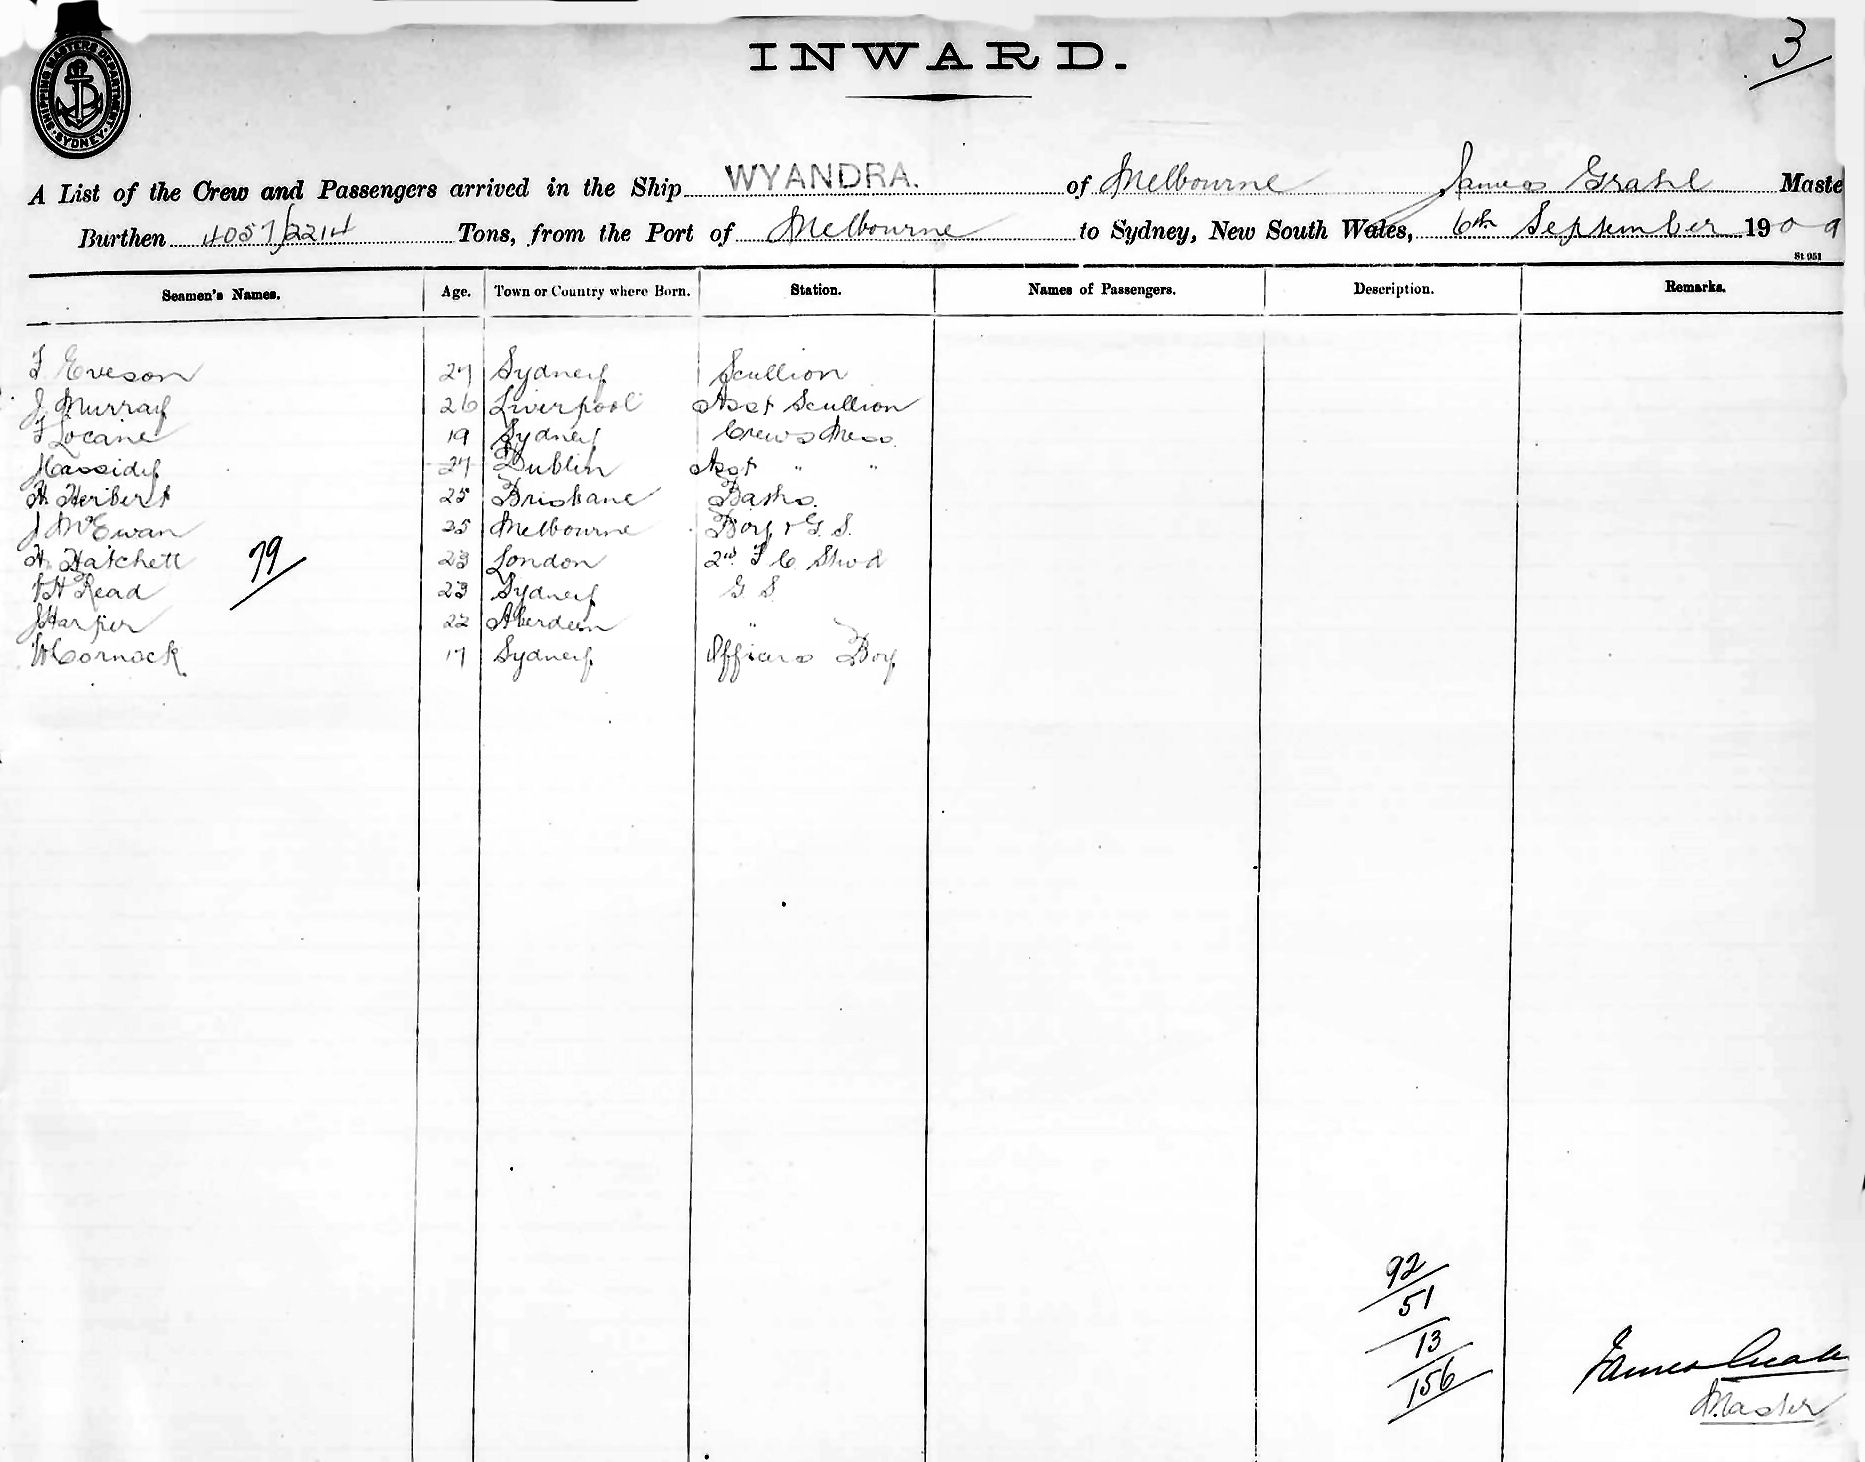 SHIPPING MASTERS DEPARTMENT SYDNEY
INWARD.
3
A List of the Crew and Passengers arrived in the Ship WYANDRA. of Melbourne James Grahl Maste
Burthen 4057/2214 Tons, from the Port of Melbourne to Sydney, New South Wales, 6th September 1909
St 951
Seamen's Names. Age. Town or Country where Born. Station. Names of Passengers. Description. Remarks.
F Eveson 27 Sydney Scullion
J Murray 26 Liverpool Asst Scullion
F Locaine 19 Sydney Crews Mess
J Cassidy 27 Dublin Asst " "
H Herbert 25 Brisbane Baths
J McEwan 25 Melbourne Boy & G. S.
H Hatchett 23 London 2nd F C Stwd
H Read 23 Sydney G S
J Harper 22 Aberdeen "
W Cornock 17 Sydney Officers Boy
79
92
51
13
156
James
Master